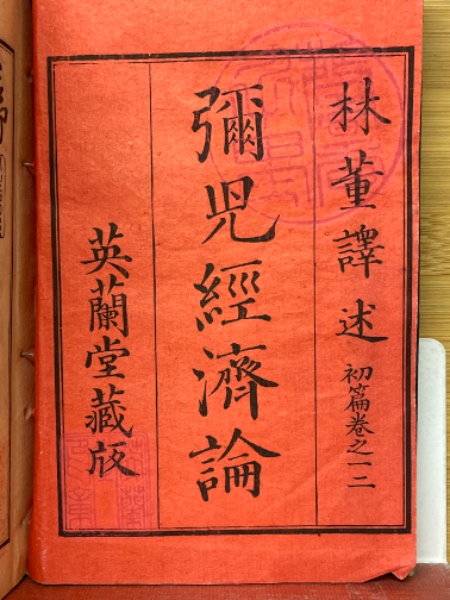 林董譯述 初篇卷之一二
彌児經濟論
英蘭堂藏版